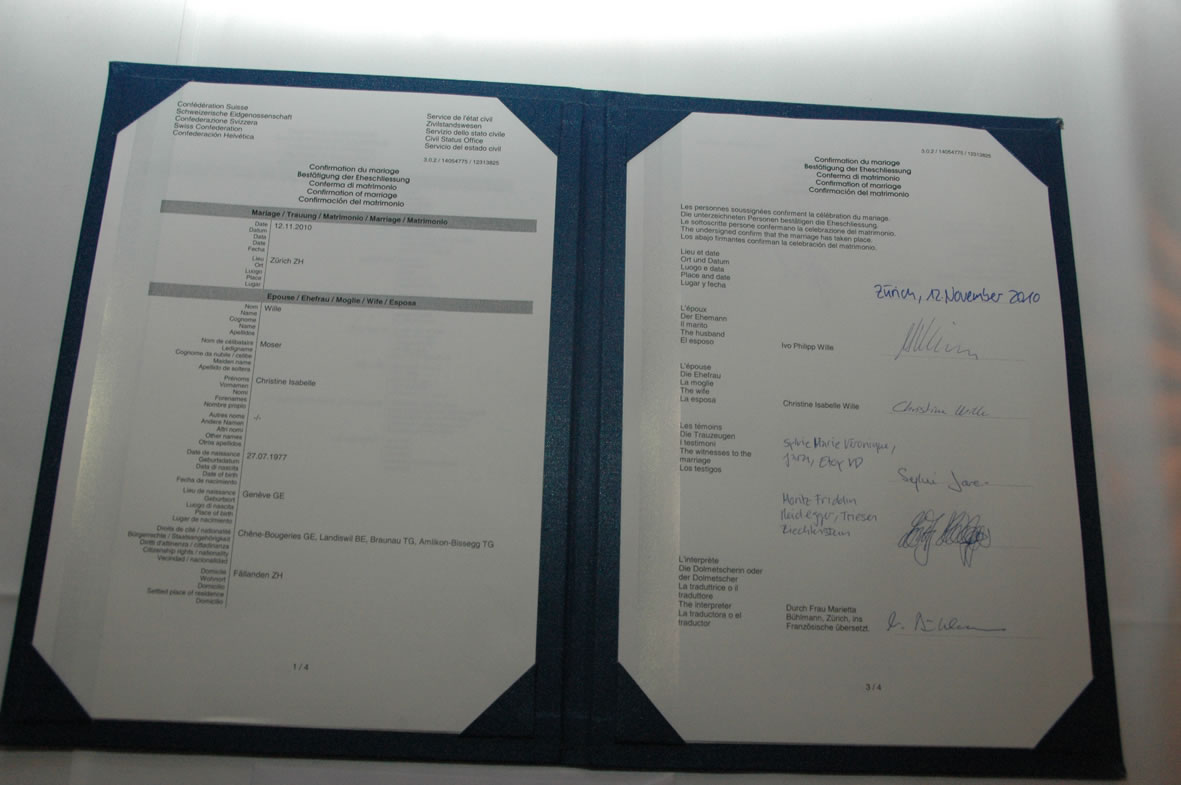 Confédération Suisse
Schweizerische Eidgenossenschaft
Confederazione Svizzera
Swiss Confederation
Confederación Helvética
Service de l'état civil
Zivilstandswesen
Servizio dello stato civile
Civil Status Office
Servicio del estado civil
3.0.2 / 14054775 / 12313825
Confirmation du mariage
Bestätigung der Eheschliessung
Conferma di matrimonio
Confirmation of marriage
Confirmación del matrimonio
Mariage / Trauung / Matrimonio / Marriage / Matrimonio
Date 12.11.2010
Datum
Data
Date
Fecha
Lieu Zürich ZH
Ort
Luogo
Place
Lugar
Epouse / Ehefrau / Moglie / Wife / Esposa
Nom Wille
Name
Cognome
Name
Apellidos
Nom de célibataire Moser
Ledigname
Cognome da nubile / celibe
Maiden name
Apellido de soltera
Prénoms Christine Isabelle
Vornamen
Nomi
Forenames
Nombre propio
Autres noms -/-
Andere Namen
Altri nomi
Other names
Otros apellidos
Date de naissance 27.07.1977
Geburtsdatum
Data di nascita
Date of birth
Fecha de nacimiento
Lieu de naissance Genève GE
Geburtsort
Luogo di nascita
Place of birth
Lugar de nacimiento
Droits de cité / nationalité Chêne-Bougeries GE, Landiswil BE, Braunau TG, Amlikon-Bissegg TG
Bürgerrechte / Staatsangehörigkeit
Diritti d'attinenza / cittadinanza
Citizenship rights / nationality
Vecindad / nacionalidad
Domicile Fällanden ZH
Wohnort
Domicilio
Settled place of residence
Domicilio
1 / 4
3.0.2 / 14054775 / 12313825
Confirmation du mariage
Bestätigung der Eheschliessung
Conferma di matrimonio
Confirmation of marriage
Confirmación del matrimonio
Les personnes soussignées confirment la célébration du mariage.
Die unterzeichneten Personen bestätigen die Eheschliessung.
Le sottoscritte persone confermano la celebrazione del matrimonio.
The undersigned confirm that the marriage has taken place.
Los abajo firmantes confirman la celebración del matrimonio.
Lieu et date
Ort und Datum
Luogo e data
Place and date
Lugar y fecha
Zürich, 12. November 2010
L'époux
Der Ehemann
Il marito
The husband
El esposo
Ivo Philipp Wille
L'épouse
Die Ehefrau
La moglie
The wife
La esposa
Christine Isabelle Wille
Christine Wille
Les témoins
Die Trauzeugen
I testimoni
The witnesses to the
marriage
Los testigos
Sylvie Marie Véronique,
Etoy VD
Sylvie
Moritz Fridolin
Heidegger, Triesen
Liechtenstein
L'interprète
Die Dolmetscherin oder
der Dolmetscher
La traduttrice o il
traduttore
The interpreter
La traductora o el
traductor
Durch Frau Marietta
Bühlmann, Zürich, ins
Französische übersetzt.
3 / 4